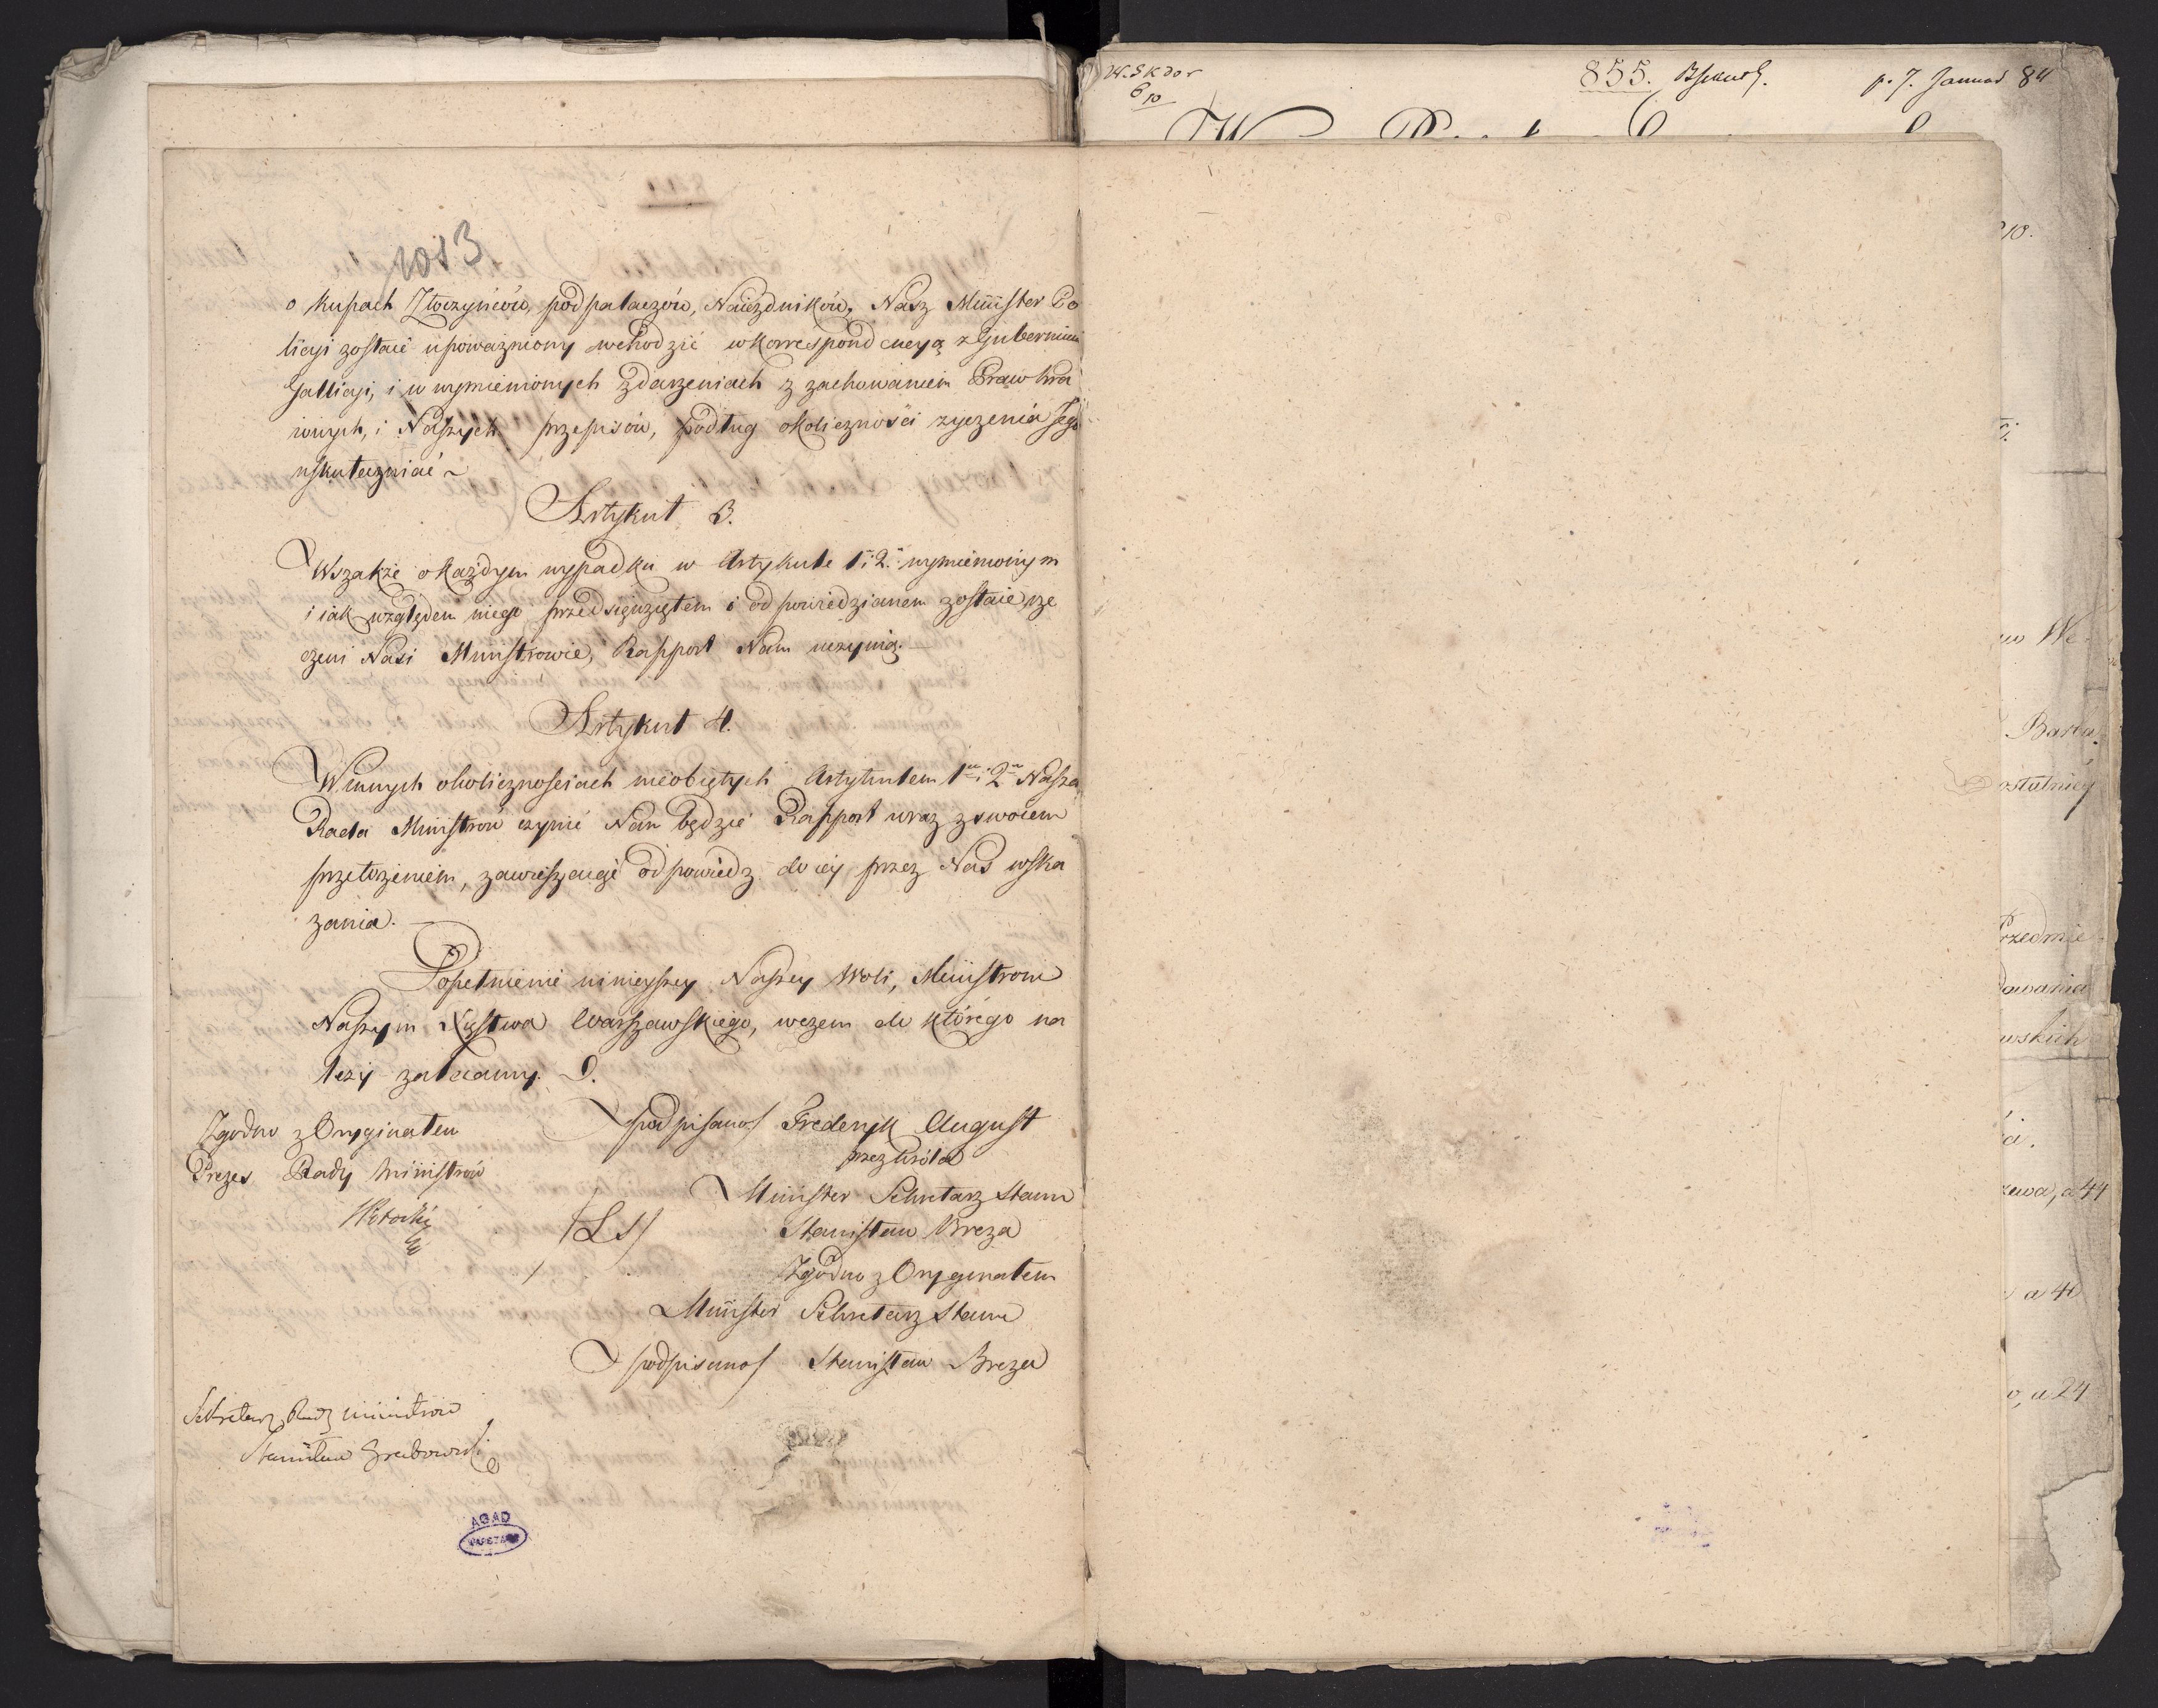 1013
o kupach Złoczyńców, podpalaczów, Naiezdników, Nasz Minister Po
licyi zostaie upoważniony wchodzić w korrespondencyą z Gubernium
Gallicyi, i w wymienionych zdarzeniach z zachowaniem Praw kra
iowych, i Naszych przepisów, podług okoliczności zyczenia Jego
uskuteczniać ~
Artykuł 3.
Wszakże o każdym wypadku w Artykule 1. i 2. wymienionym
i iak względem niego przedsięwziętem i odpowiedzianem zostaie, rze
czeni Nasi Ministrowie, Rapport Nam uczynią. —
Artykuł 4.
W innych okolicznosciach nieobiętych Artykułem 1m i 2m Nasza
Rada Ministrow czynić Nam będzie Rapport wraz z swoiem
przełożeniem, zawieszaiąc odpowiedz do iey przez Nas wska
zania. —
Dopełnienie ninieyszey Naszey Woli, Ministrom
Naszym Xięstwa Warszawskiego, w czem do którego na
leży zalecamy.
podpisano/ Frederyk August
przez Króla
Minister Sekretarz Stanu
/LS/ Stanisław Breza
Zgodno z Oryginałem
Minister Sekretarz Stanu
podpisano/ Stanisław Breza
Zgodno z Oryginałem
Prezes Rady Ministrów
Sekretarz Rady Ministrów
Stanisław Grabowski
AGAD
W. Skdor
6/10
855.
p. 7. Januar
10.
We
ostatniey
Przedmie
dawania
wskich
zewa, a 44
a 40
o, a 24